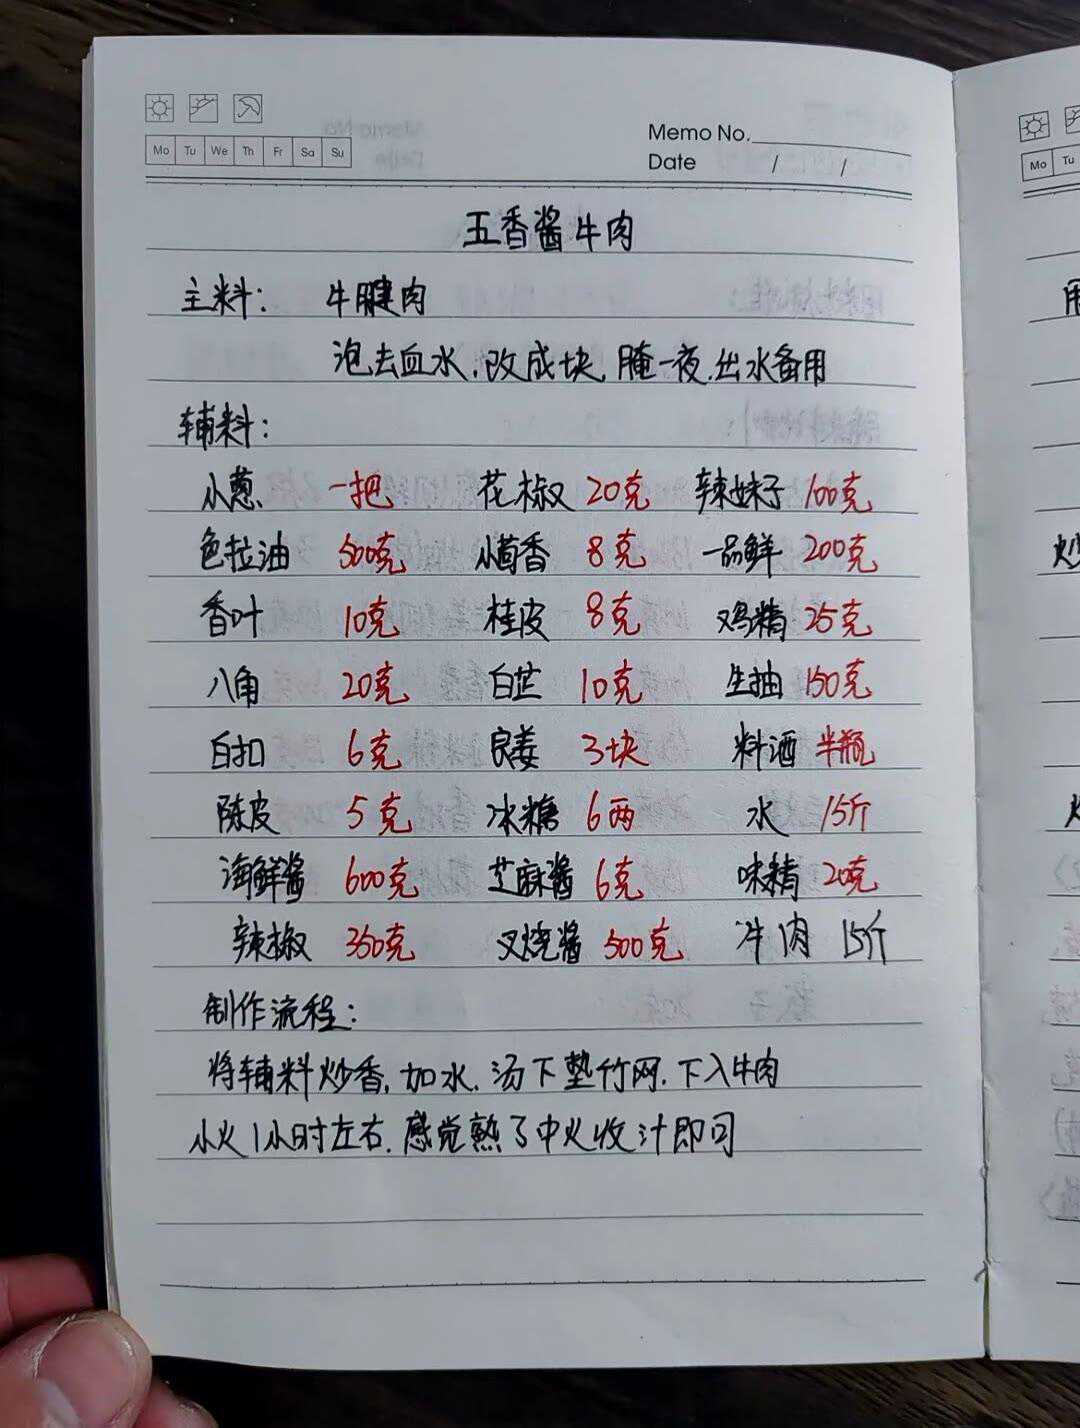 Mo Tu We Th Fr Sa Su
Memo No.
Date / /
五香酱牛肉
主料: 牛腱肉
泡去血水,改成块,腌一夜.出水备用
辅料:
小葱 一把 花椒 20克 辣妹子 100克
色拉油 500克 小茴香 8克 一品鲜 200克
香叶 10克 桂皮 8克 鸡精 25克
八角 20克 白芷 10克 生抽 150克
白扣 6克 良姜 3块 料酒 半瓶
陈皮 5克 冰糖 6两 水 15斤
海鲜酱 600克 芝麻酱 6克 味精 20克
辣椒 350克 叉烧酱 500克 牛肉 15斤
制作流程:
将辅料炒香,加水.汤下垫竹网.下入牛肉
小火1小时左右.感觉熟了中火收汁即可
Mo Tu
用
炒